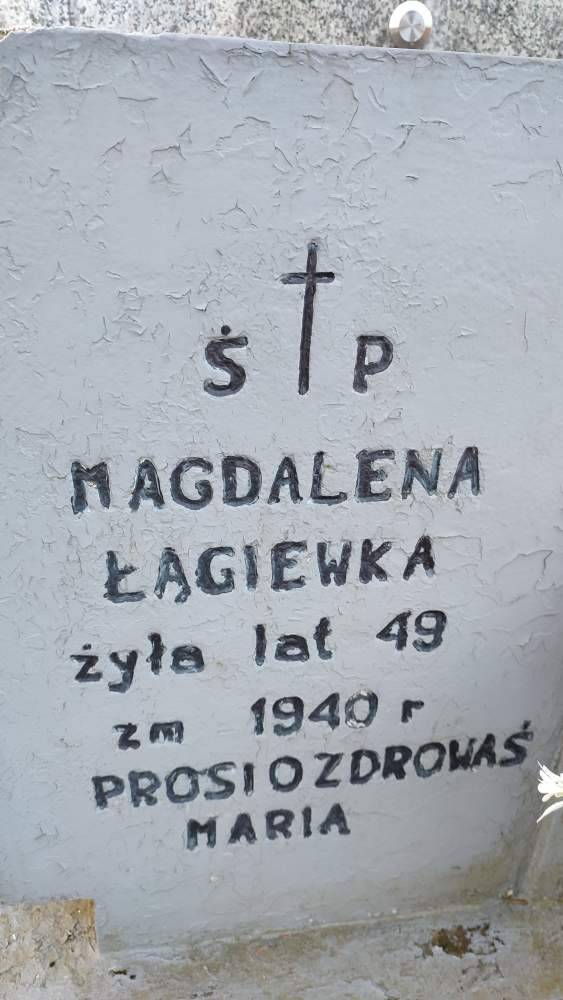 Ś P
MAGDALENA
ŁĄGIEWKA
żyła lat 49
zm 1940 r
PROSI O ZDROWAŚ
MARIA